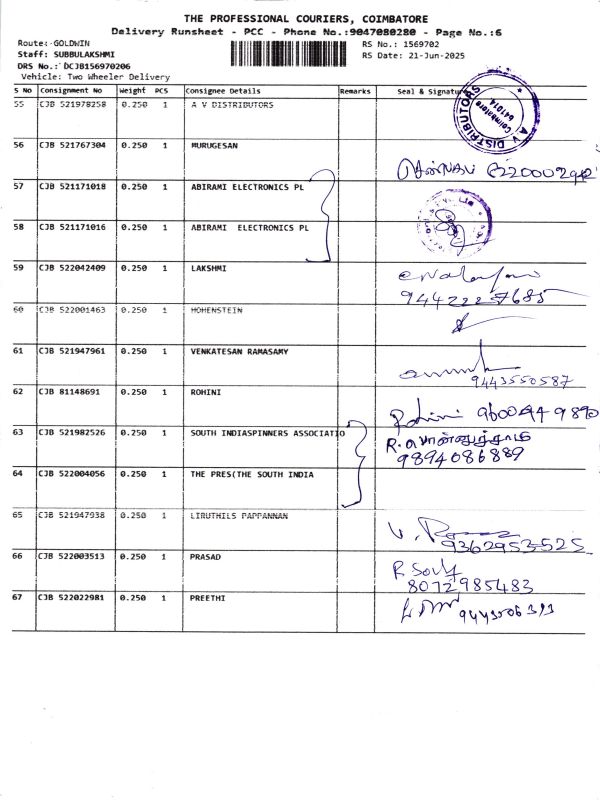 THE PROFESSIONAL COURIERS, COIMBATORE
Delivery Runsheet - PCC - Phone No.:9047080280 - Page No.:6
Route: GOLDWIN RS No.: 1569702
Staff: SUBBULAKSHMI RS Date: 21-Jun-2025
DRS No.: DCJB156970206
Vehicle: Two Wheeler Delivery
S No Consignment No Weight PCS Consignee Details Remarks Seal & Signatur
55 CJB 521978258 0.250 1 A V DISTRIBUTORS
A V DISTRIBUTORS
Coimbatore
641014
56 CJB 521767304 0.250 1 MURUGESAN
57 CJB 521171018 0.250 1 ABIRAMI ELECTRONICS PL
58 CJB 521171016 0.250 1 ABIRAMI ELECTRONICS PL
59 CJB 522042409 0.250 1 LAKSHMI
9442227685
60 CJB 522001463 0.250 1 HOHENSTEIN
61 CJB 521947961 0.250 1 VENKATESAN RAMASAMY
9443550587
62 CJB 81148691 0.250 1 ROHINI
Rohini 9600449890
63 CJB 521982526 0.250 1 SOUTH INDIASPINNERS ASSOCIATIO
R.
9894086889
64 CJB 522004056 0.250 1 THE PRES(THE SOUTH INDIA
65 CJB 521947938 0.250 1 LIRUTHILS PAPPANNAN
9362953525
66 CJB 522003513 0.250 1 PRASAD
8072985483
67 CJB 522022981 0.250 1 PREETHI